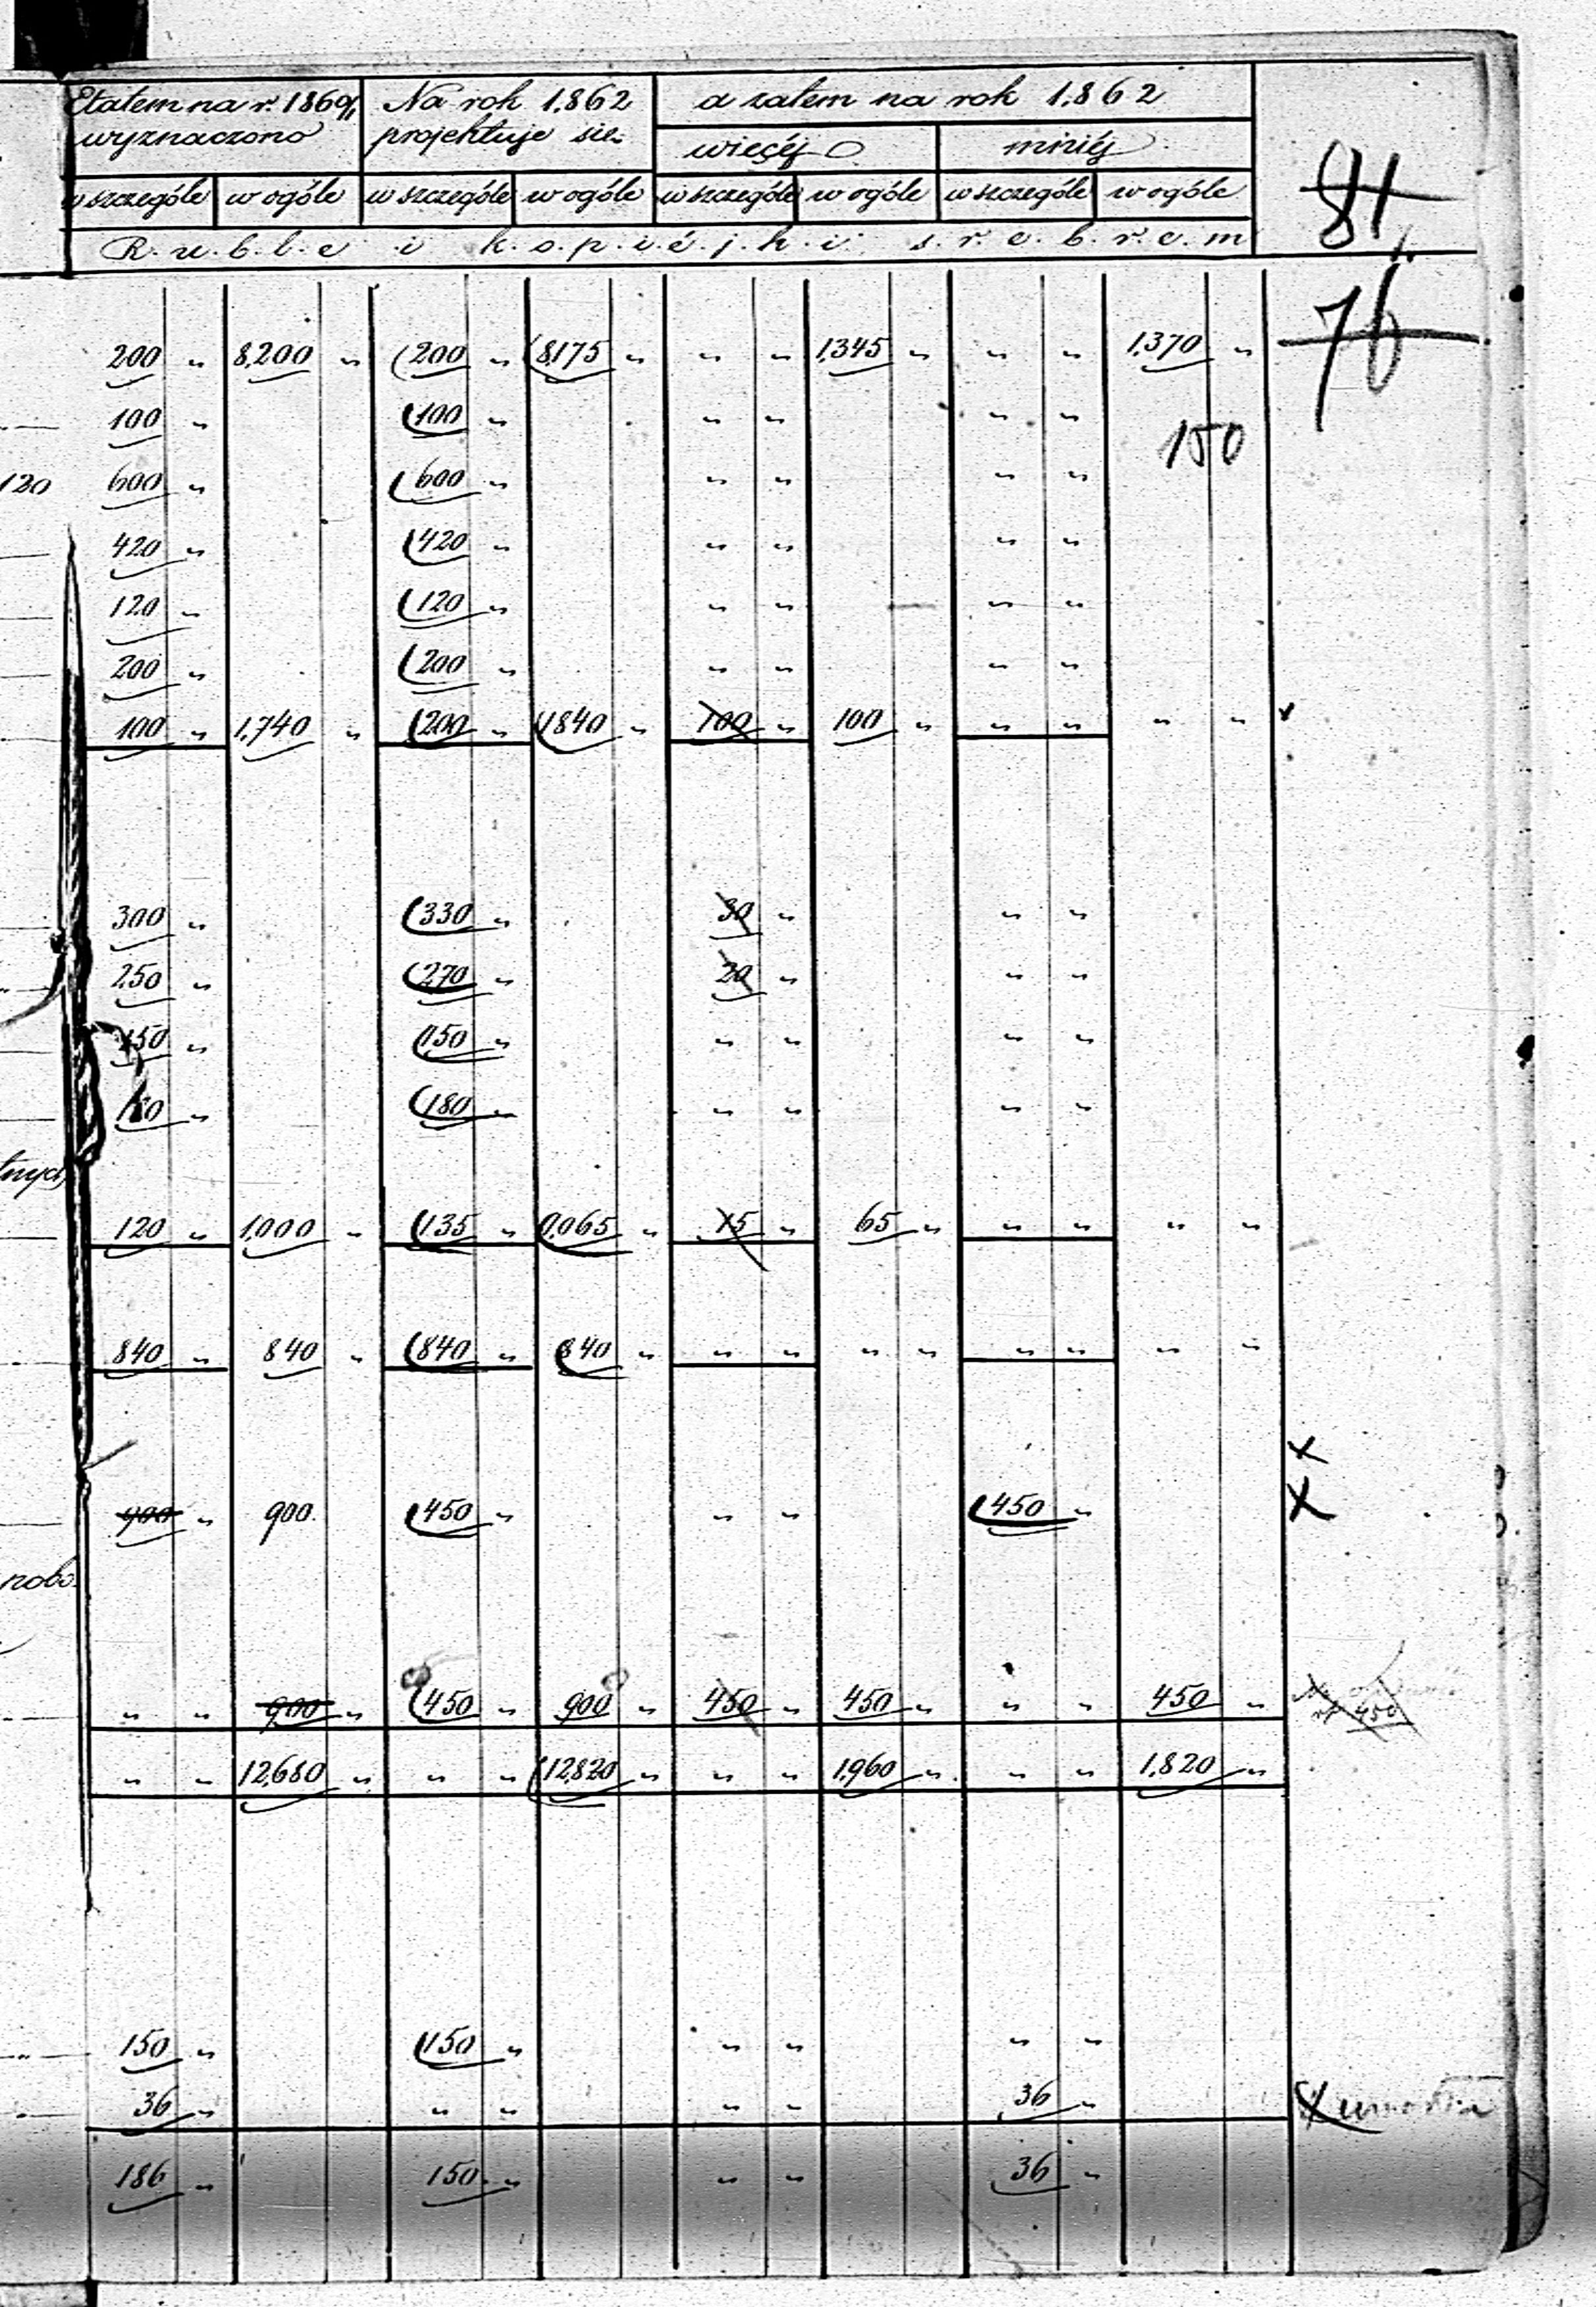 Etatem na r. 1860/1 Na rok 1862 a zatem na rok 1862
wyznaczono projektuje się więcéj mniéj
w szczególe w ogóle w szczególe w ogóle w szczególe w ogóle w szczególe w ogóle
81
Ruble i kopiéjki srebrem
76
200 " 8,200 " 200 " 8175 " " " 1,345 " " " 1,370 "
100 " 100 " " " " "
150
120 600 " 600 " " " " "
420 " 420 " " " " "
120 " 120 " " " " "
200 " 200 " " " " "
100 " 1,740 " 200 " 1840 " 100 " 100 " " " " "
300 " 330 " 30 " " "
250 " 270 " 20 " " "
150 " 150 " " " " "
" 180 " " " " "
tnych
120 " 1,000 " 135 " 1,065 " 15 " 65 " " " " "
840 " 840 " 840 " 840 " " " " " " " " "
x
900 " 900 450 " " " 450 " x
" " 900 " 450 " 900 " 450 " 450 " " " 450 " 450
" " 12,680 " " " 12,820 " " " 1,960 " " " 1,820 "
150 " 150 " " " " "
36 " " " " " 36 "
186 " 150 " " " 36 "